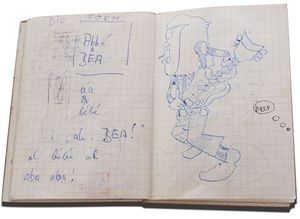 DIE FORM
Abbé
BEA
aa
&
bébé
ah BEA!
ah bébé ah
aba aba!
BEEP